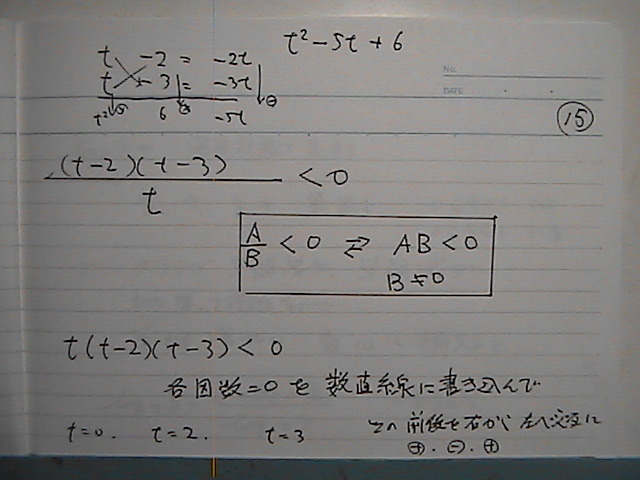 t² - 5t + 6
t - 2 = -2t
t - 3 = -3t
t² 6 -5t
No.
DATE
15
(t-2)(t-3)
t
< 0
A/B < 0 ⇄ AB < 0
B≠0
t(t-2)(t-3) < 0
各因数=0を数直線に書き込んで
t=0. t=2. t=3
前後を右から左へ交互に
⊕.⊖.⊕